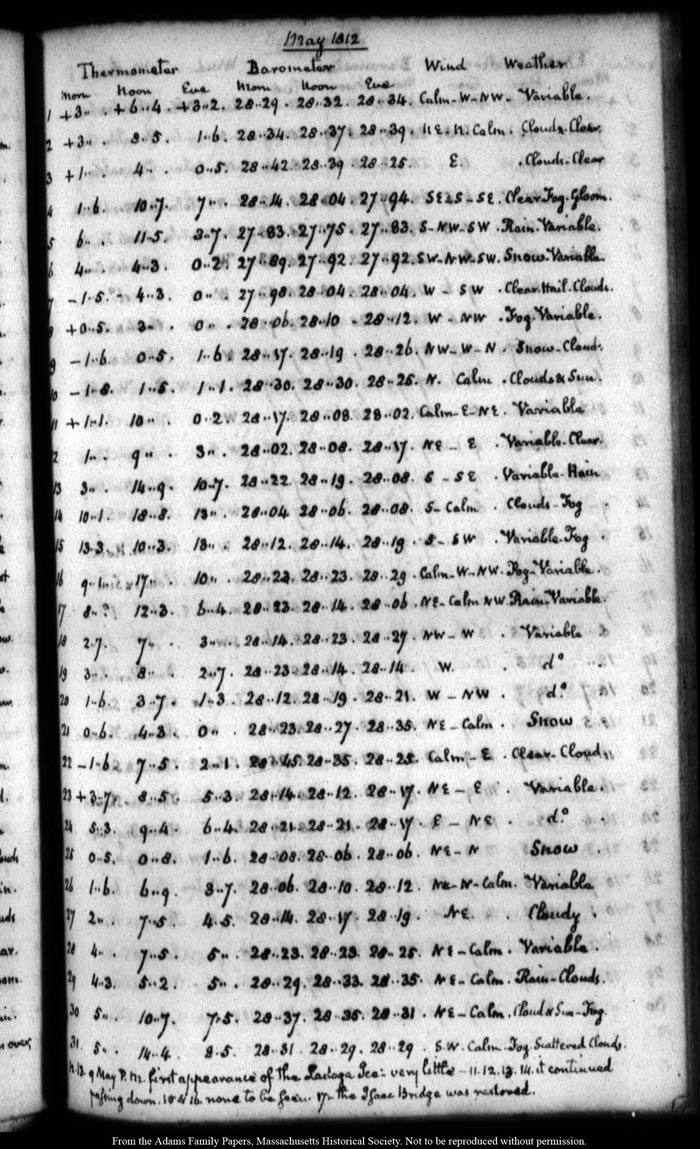 May 1812
Thermometer Barometer Wind Weather
Morn Noon Eve Morn Noon Eve
1 +3.. . +6..4. +3..2. 28..29. 28..32. 28..34. Calm-W-NW. Variable.
2 +3.. . 8..5. 1..6. 28..34. 28..37. 28..39. NE. N. Calm. Clouds. Clear.
3 +1.. . 4.. . 0..5. 28..42. 28..39. 28..25. E. Clouds-Clear
4 1..6. 10..7. 7.. . 28..14. 28..04. 27..94. SE&S-SE. Clear. Fog. Gloom.
5 6.. . 11..5. 3..7. 27..83. 27..75. 27..83. S-NW-SW. Rain. Variable.
6 4.. . 4..3. 0..2. 27..89. 27..92. 27..92. SW-NW-SW. Snow. Variable.
7 -1..5. 4..3. 0.. . 27..98. 28..04. 28..04. W - SW. Clear. Hail. Clouds.
8 +0..5. 3.. . 0.. . 28..06. 28..10. 28..12. W - NW. Fog. Variable.
9 -1..6. 0..5. 1..6. 28..17. 28..19. 28..26. NW-W-N. Snow-Clouds
10 -1..8. 1..5. 1..1. 28..30. 28..30. 28..25. N. Calm. Clouds & Sun.
11 +1..1. 10.. . 0..2 28..17. 28..08. 28..02. Calm-E-NE. Variable
12 1.. . 9.. . 3.. . 28..02. 28..08. 28..17. NE - E. Variable-Clear.
13 3.. . 14..9. 10..7. 28..22. 28..19. 28..08. S - SE. Variable-Rain
14 10..1. 18..8. 13.. . 28..04. 28..06. 28..08. S-Calm. Clouds-Fog
15 13..3. 10..3. 13.. . 28..12. 28..14. 28..19. S - SW. Variable. Fog.
16 9..1. 17.. . 10.. . 28..23. 28..23. 28..29. Calm-W-NW. Fog-Variable.
17 8.. 12..3. 6..4. 28..23. 28..14. 28..06. NE-Calm NW. Rain-Variable.
18 2..7. 7.. . 3.. . 28..14. 28..23. 28..27. NW-W. Variable
19 3.. . 8.. . 2..7. 28..23. 28..14. 28..14. W. do
20 1..6. 3..7. 1..3. 28..12. 28..19. 28..21. W - NW. do.
21 0..6. 4..3. 0.. . 28..23. 28..27. 28..35. NE-Calm. Snow
22 -1..6. 7..5. 2..1. 28..45. 28..35. 28..25. Calm-E. Clear-Clouds
23 +3..7. 8..5. 5..3. 28..14. 28..12. 28..17. NE - E. Variable.
24 5..3. 9..4. 6..4. 28..21. 28..21. 28..17. E - NE. do.
25 0..5. 0..8. 1..6. 28..08. 28..06. 28..06. NE-N Snow.
26 1..6. 6..9. 3..7. 28..06. 28..10. 28..12. NE-N-Calm. Variable
27 2.. . 7..5. 4..5. 28..14. 28..17. 28..19. NE. Cloudy.
28 4.. . 7..5. 5.. . 28..23. 28..23. 28..25. NE-Calm. Variable.
29 4..3. 5..2. 5.. . 28..29. 28..33. 28..35. NE-Calm. Rain-Clouds.
30 5.. . 10..7. 7..5. 28..37. 28..35. 28..31. NE-Calm. Cloud & Sun-Fog.
31. 5.. . 14..4. 8..5. 28..31. 28..29. 28..29. S.W. Calm. Fog. Scattered Clouds.
N.B. 9 May P.M. first appearance of the Ladoga Ice: very little - 11. 12. 13. 14. it continued
passing down. 15 & 16. none to be seen. 17. the Isaac Bridge was restored.
From the Adams Family Papers, Massachusetts Historical Society. Not to be reproduced without permission.